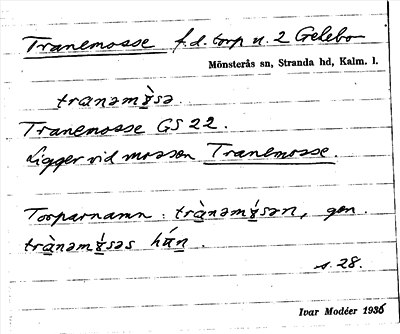 Tranemosse f.d. torp u. 2 Gelebo
Mönsterås sn, Stranda hd, Kalm. l.
tranəmɤ̀sə
Tranemosse GS 22.
Ligger vid mossen Tranemosse.
Torparnamn: trànəmɤ́sən, gen.
trànəmɤ́səs hán.
s. 28.
Ivar Modéer 1936